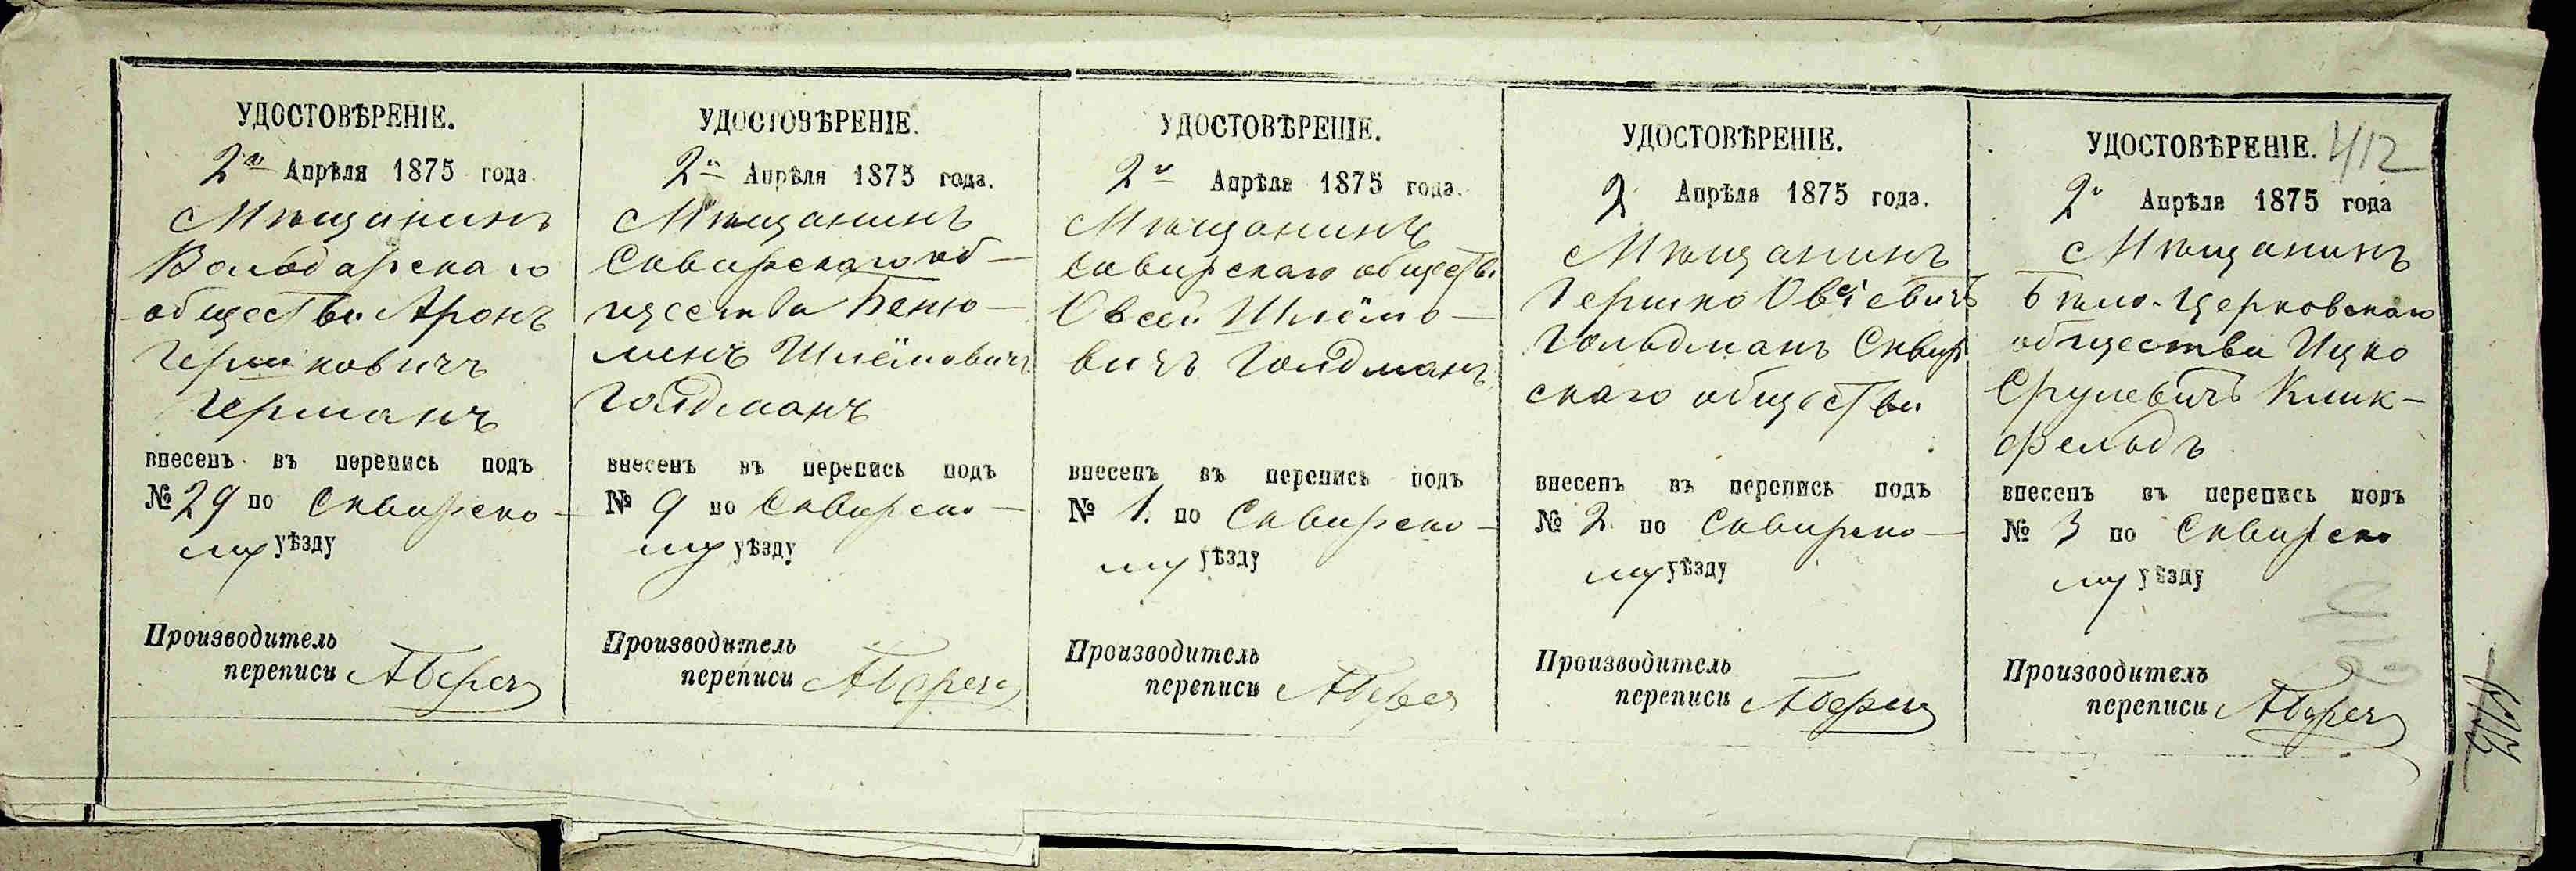 УДОСТОВѢРЕНІЕ.
2го Апрѣля 1875 года.
Мѣщанинъ
Володарскаго
общества Аронъ
Гершковичъ
Германъ
внесенъ въ перепись подъ
№ 29 по Сквирско-
му уѣзду
Производитель
переписи
УДОСТОВѢРЕНІЕ.
2го Апрѣля 1875 года.
Мѣщанинъ
Сквирскаго об-
щества Беню-
менъ Шлёмовичъ
Голдманъ
внесенъ въ перепись подъ
№ 9 по Сквирско-
му уѣзду
Производитель
переписи
УДОСТОВѢРЕНІЕ.
2го Апрѣля 1875 года.
Мѣщанинъ
Сквирскаго общества
Овсей Шлёмо-
вичъ Голдманъ
внесенъ въ перепись подъ
№ 1. по Сквирско-
му уѣзду
Производитель
переписи
УДОСТОВѢРЕНІЕ.
2 Апрѣля 1875 года.
Мѣщанинъ
Гершко Овсіевичъ
Гольдманъ Сквир
скаго общества
внесенъ въ перепись подъ
№ 2. по Сквирско-
му уѣзду
Производитель
переписи
УДОСТОВѢРЕНІЕ. 412
2го Апрѣля 1875 года
Мѣщанинъ
Бѣло-Церковскаго
общества Ицко
Срулевичъ Клик-
фельдъ
внесенъ въ перепись подъ
№ 3 по Сквирско
му уѣзду
Производитель
переписи